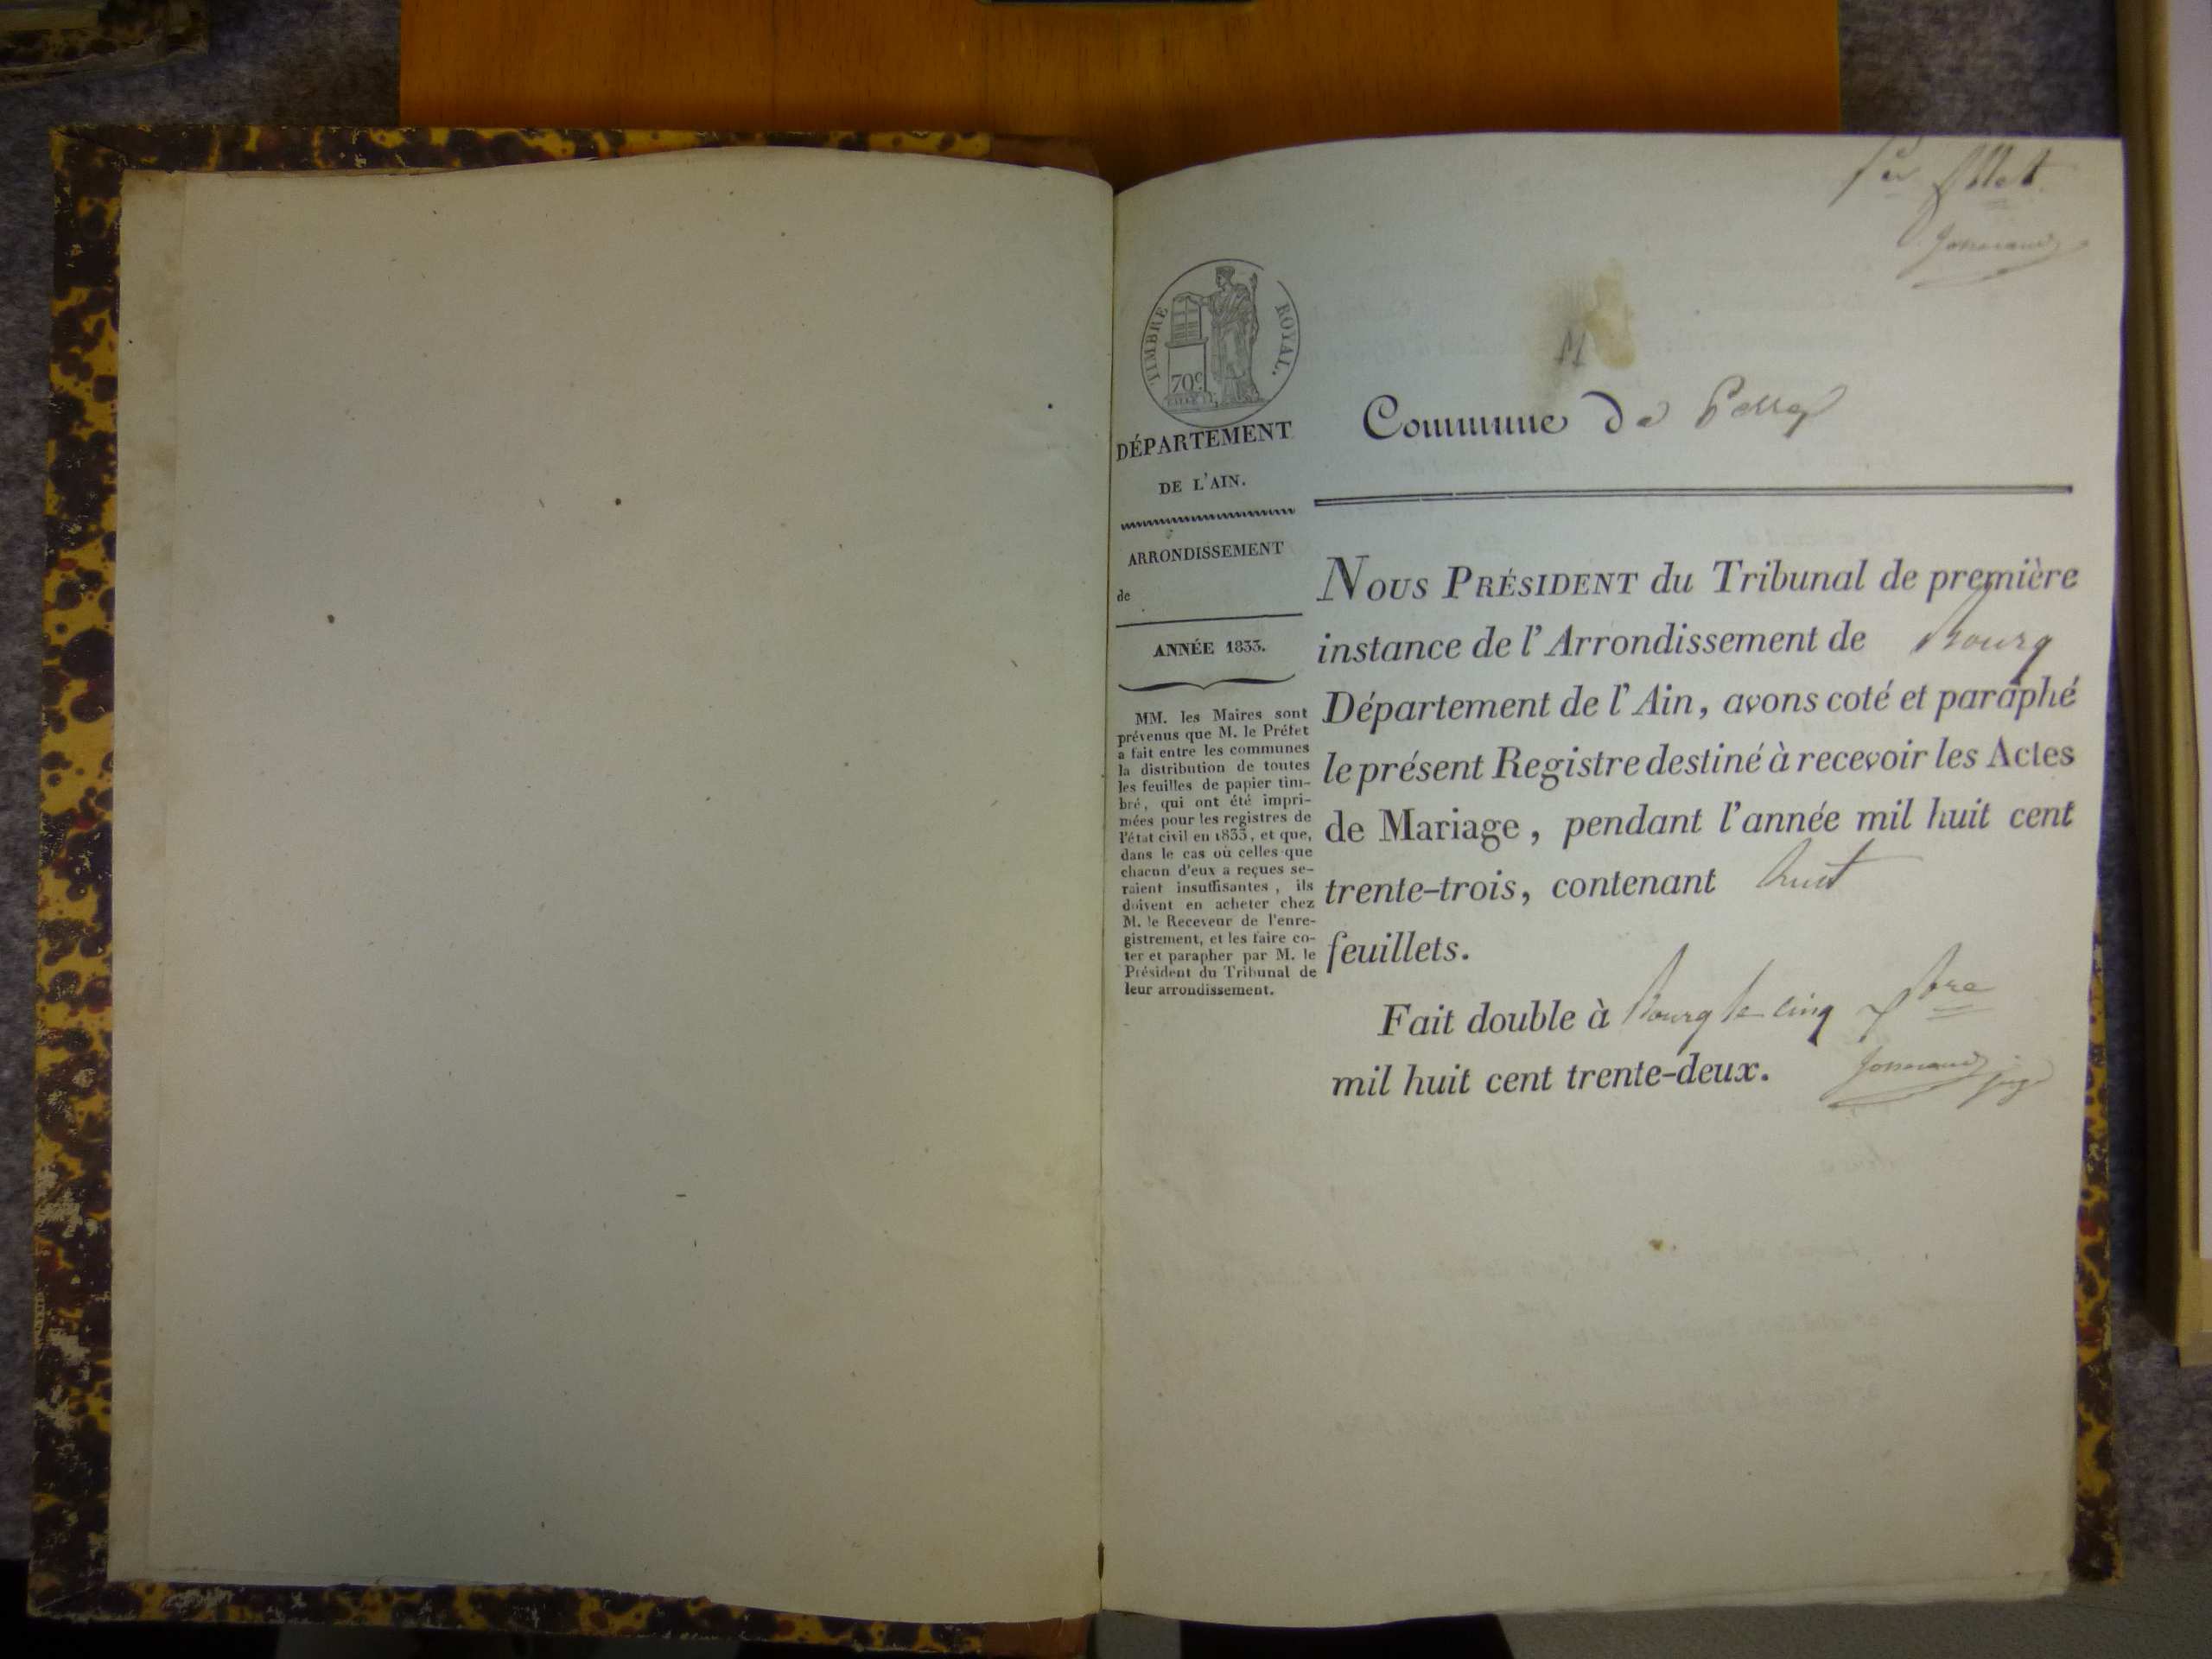 TIMBRE ROYAL.
70c
DÉPARTEMENT
DE L'AIN.
ARRONDISSEMENT
de
ANNÉE 1833.
MM. les Maires sont
prévenus que M. le Préfet
a fait entre les communes
la distribution de toutes
les feuilles de papier tim-
bré, qui ont été impri-
mées pour les registres de
l'état civil en 1833, et que,
dans le cas où celles que
chacun d'eux a reçues se-
raient insuffisantes, ils
doivent en acheter chez
M. le Receveur de l'enre-
gistrement, et les faire co-
ter et parapher par M. le
Président du Tribunal de
leur arrondissement.
M
Commune de
NOUS PRÉSIDENT du Tribunal de première
instance de l'Arrondissement de Bourg
Département de l'Ain, avons coté et paraphé
le présent Registre destiné à recevoir les Actes
de Mariage, pendant l'année mil huit cent
trente-trois, contenant huit
feuillets.
Fait double à Bourg le cinq
mil huit cent trente-deux.